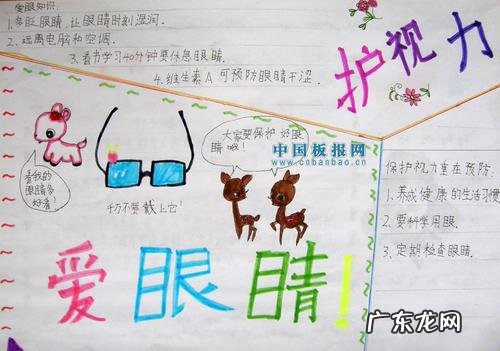 爱眼知识:
1.多眨眼睛,让眼睛时刻湿润.
2.远离电脑和空调.
3.看书学习40分钟要休息眼睛.
4.维生素A可预防眼睛干涩.
护视力
看我的
眼睛多
好看!
千万不要戴上它!
大家要保护好眼
睛哦!
中国板报网
www.cnbanbao.cn
保护视力重在预防.
1.养成健康的生活习惯
2.要科学用眼.
3.定期检查眼睛.
爱眼睛!
广东龙网